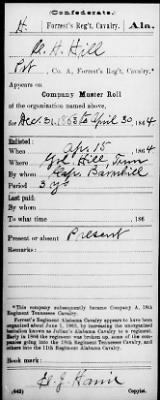 (Confederate.)
H. Forrest's Reg't, Cavalry. Ala.
H. Hill
Pvt, Co. A, Forrest's Reg't, Cavalry.*
Appears on
Company Muster Roll
of the organization named above,
for Dec. 31, 1863 to April 30, 1864
Enlisted:
When Apr. 15, 1864
Where Hill, Tenn
By whom Capt. Barnhill
Period 3 yrs
Last paid:
By whom
To what time , 186
Present or absent Present
Remarks:
*This company subsequently became Company A, 18th
Regiment Tennessee Cavalry.
Forrest's Regiment Alabama Cavalry appears to have
been organized about June 1, 1863, by increasing the unorganized
battalion known as Julian's Alabama Cavalry to a regiment.
Early in 1865 the regiment was broken up, some of the com-
panies going into the 18th Regiment Tennessee Cavalry, and
others into the 11th Regiment Alabama Cavalry.
Book mark:
(642) Copyist.